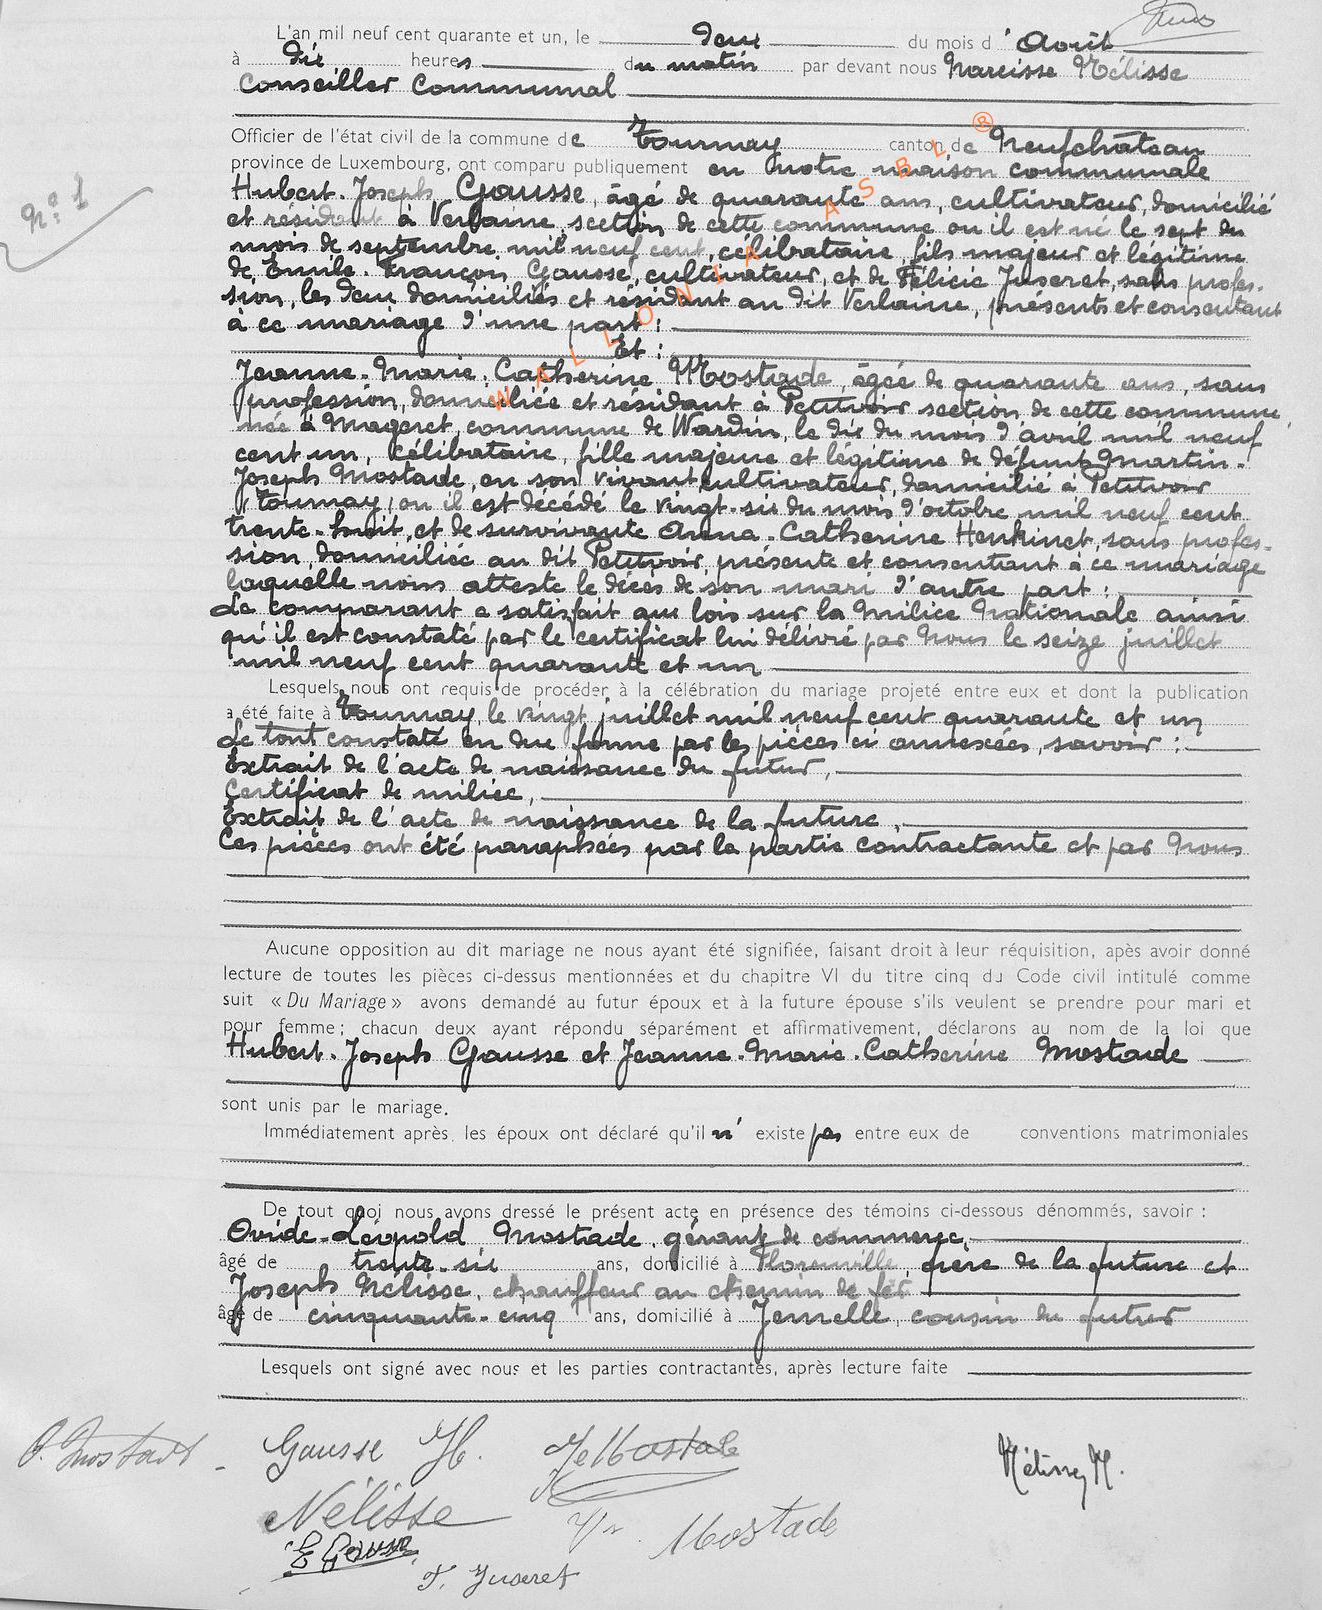 L'an mil neuf cent quarante et un, le deux du mois d'Août
à dix heures du matin par devant nous Narcisse Nélisse
Conseiller Communal
Officier de l'état civil de la commune de Tournay canton de Neufchâteau
province de Luxembourg, ont comparu publiquement en notre maison communale
Hubert-Joseph Gausse, âgé de quarante ans, cultivateur, domicilié
et résidant à Verlaine, section de cette commune où il est né le sept du
mois de septembre mil neuf cent, célibataire, fils majeur et légitime
de Emile-François Gausse, cultivateur, et de Félicie Juseret, sans profes-
sion, les deux domiciliés et résidant au dit Verlaine, présents et consentant
à ce mariage d'une part;
Et:
Jeanne-Marie-Catherine Mostade, âgée de quarante ans, sans
profession, domiciliée et résidant à Petitvoir section de cette commune
née à Mageret, commune de Wardin, le dix du mois d'avril mil neuf
cent un, célibataire, fille majeure et légitime de défunt Martin-
Joseph Mostade, en son vivant cultivateur, domicilié à Petitvoir
(Tournay) où il est décédé le vingt-six du mois d'octobre mil neuf cent
trente-huit, et de survivante Anna-Catherine Henkinet, sans profes-
sion, domiciliée au dit Petitvoir, présente et consentant à ce mariage
laquelle nous atteste le décès de son mari d'autre part;
Le comparant a satisfait aux lois sur la Milice Nationale ainsi
qu'il est constaté par le certificat lui délivré par Nous le seize juillet
mil neuf cent quarante et un
Lesquels nous ont requis de procéder à la célébration du mariage projeté entre eux et dont la publication
a été faite à Tournay, le vingt juillet mil neuf cent quarante et un
Le tout constaté en due forme par les pièces ci annexées, savoir:
Extrait de l'acte de naissance du futur,
Certificat de milice,
Extrait de l'acte de naissance de la future,
Ces pièces ont été paraphées par la partie contractante et par Nous
Aucune opposition au dit mariage ne nous ayant été signifiée, faisant droit à leur réquisition, après avoir donné
lecture de toutes les pièces ci-dessus mentionnées et du chapitre VI du titre cinq du Code civil intitulé comme
suit «Du Mariage» avons demandé au futur époux et à la future épouse s'ils veulent se prendre pour mari et
pour femme; chacun deux ayant répondu séparément et affirmativement, déclarons au nom de la loi que
Hubert-Joseph Gausse et Jeanne-Marie-Catherine Mostade
sont unis par le mariage.
Immédiatement après, les époux ont déclaré qu'il n' existe pas entre eux de conventions matrimoniales
De tout quoi nous avons dressé le présent acte en présence des témoins ci-dessous dénommés, savoir:
Ovide-Léopold Mostade, gérant de commerce,
âgé de trente-six ans, domicilié à Florenville, frère de la future et
Joseph Nélisse, chauffeur au chemin de fer
âgé de cinquante-cinq ans, domicilié à Jemelle, cousin du futur
Lesquels ont signé avec nous et les parties contractantes, après lecture faite
O. Mostade Gausse H. Mostade Nélisse N.
Nélisse Mostade
E Gausse
F. Juseret
N°: 1
WALLONIA ASBL ®